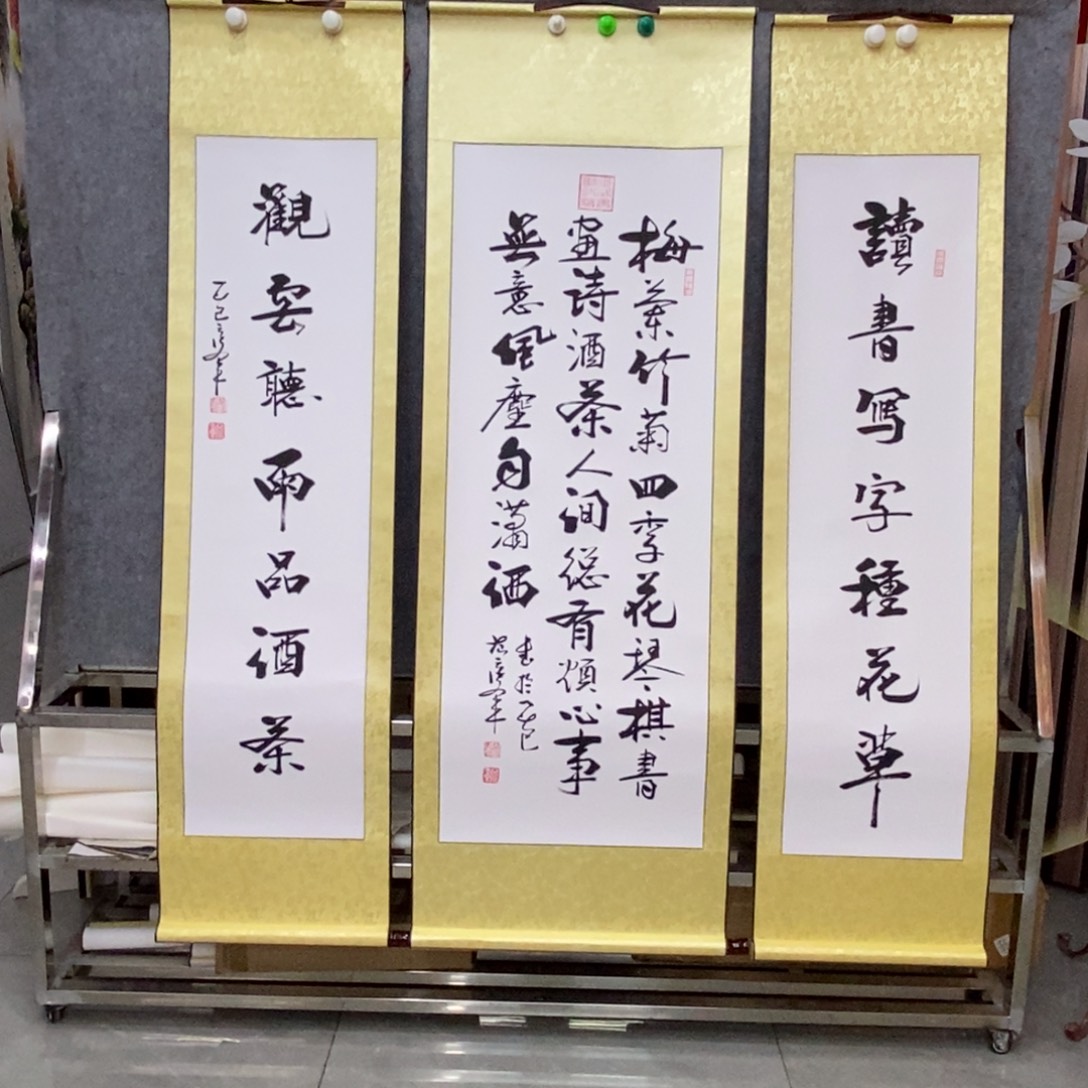 讀書写字種花草
梅蘭竹菊四季花琴棋書
画詩酒茶人间總有煩心事
無意風塵自瀟洒
书於乙巳
觀雲聽雨品酒茶
乙巳